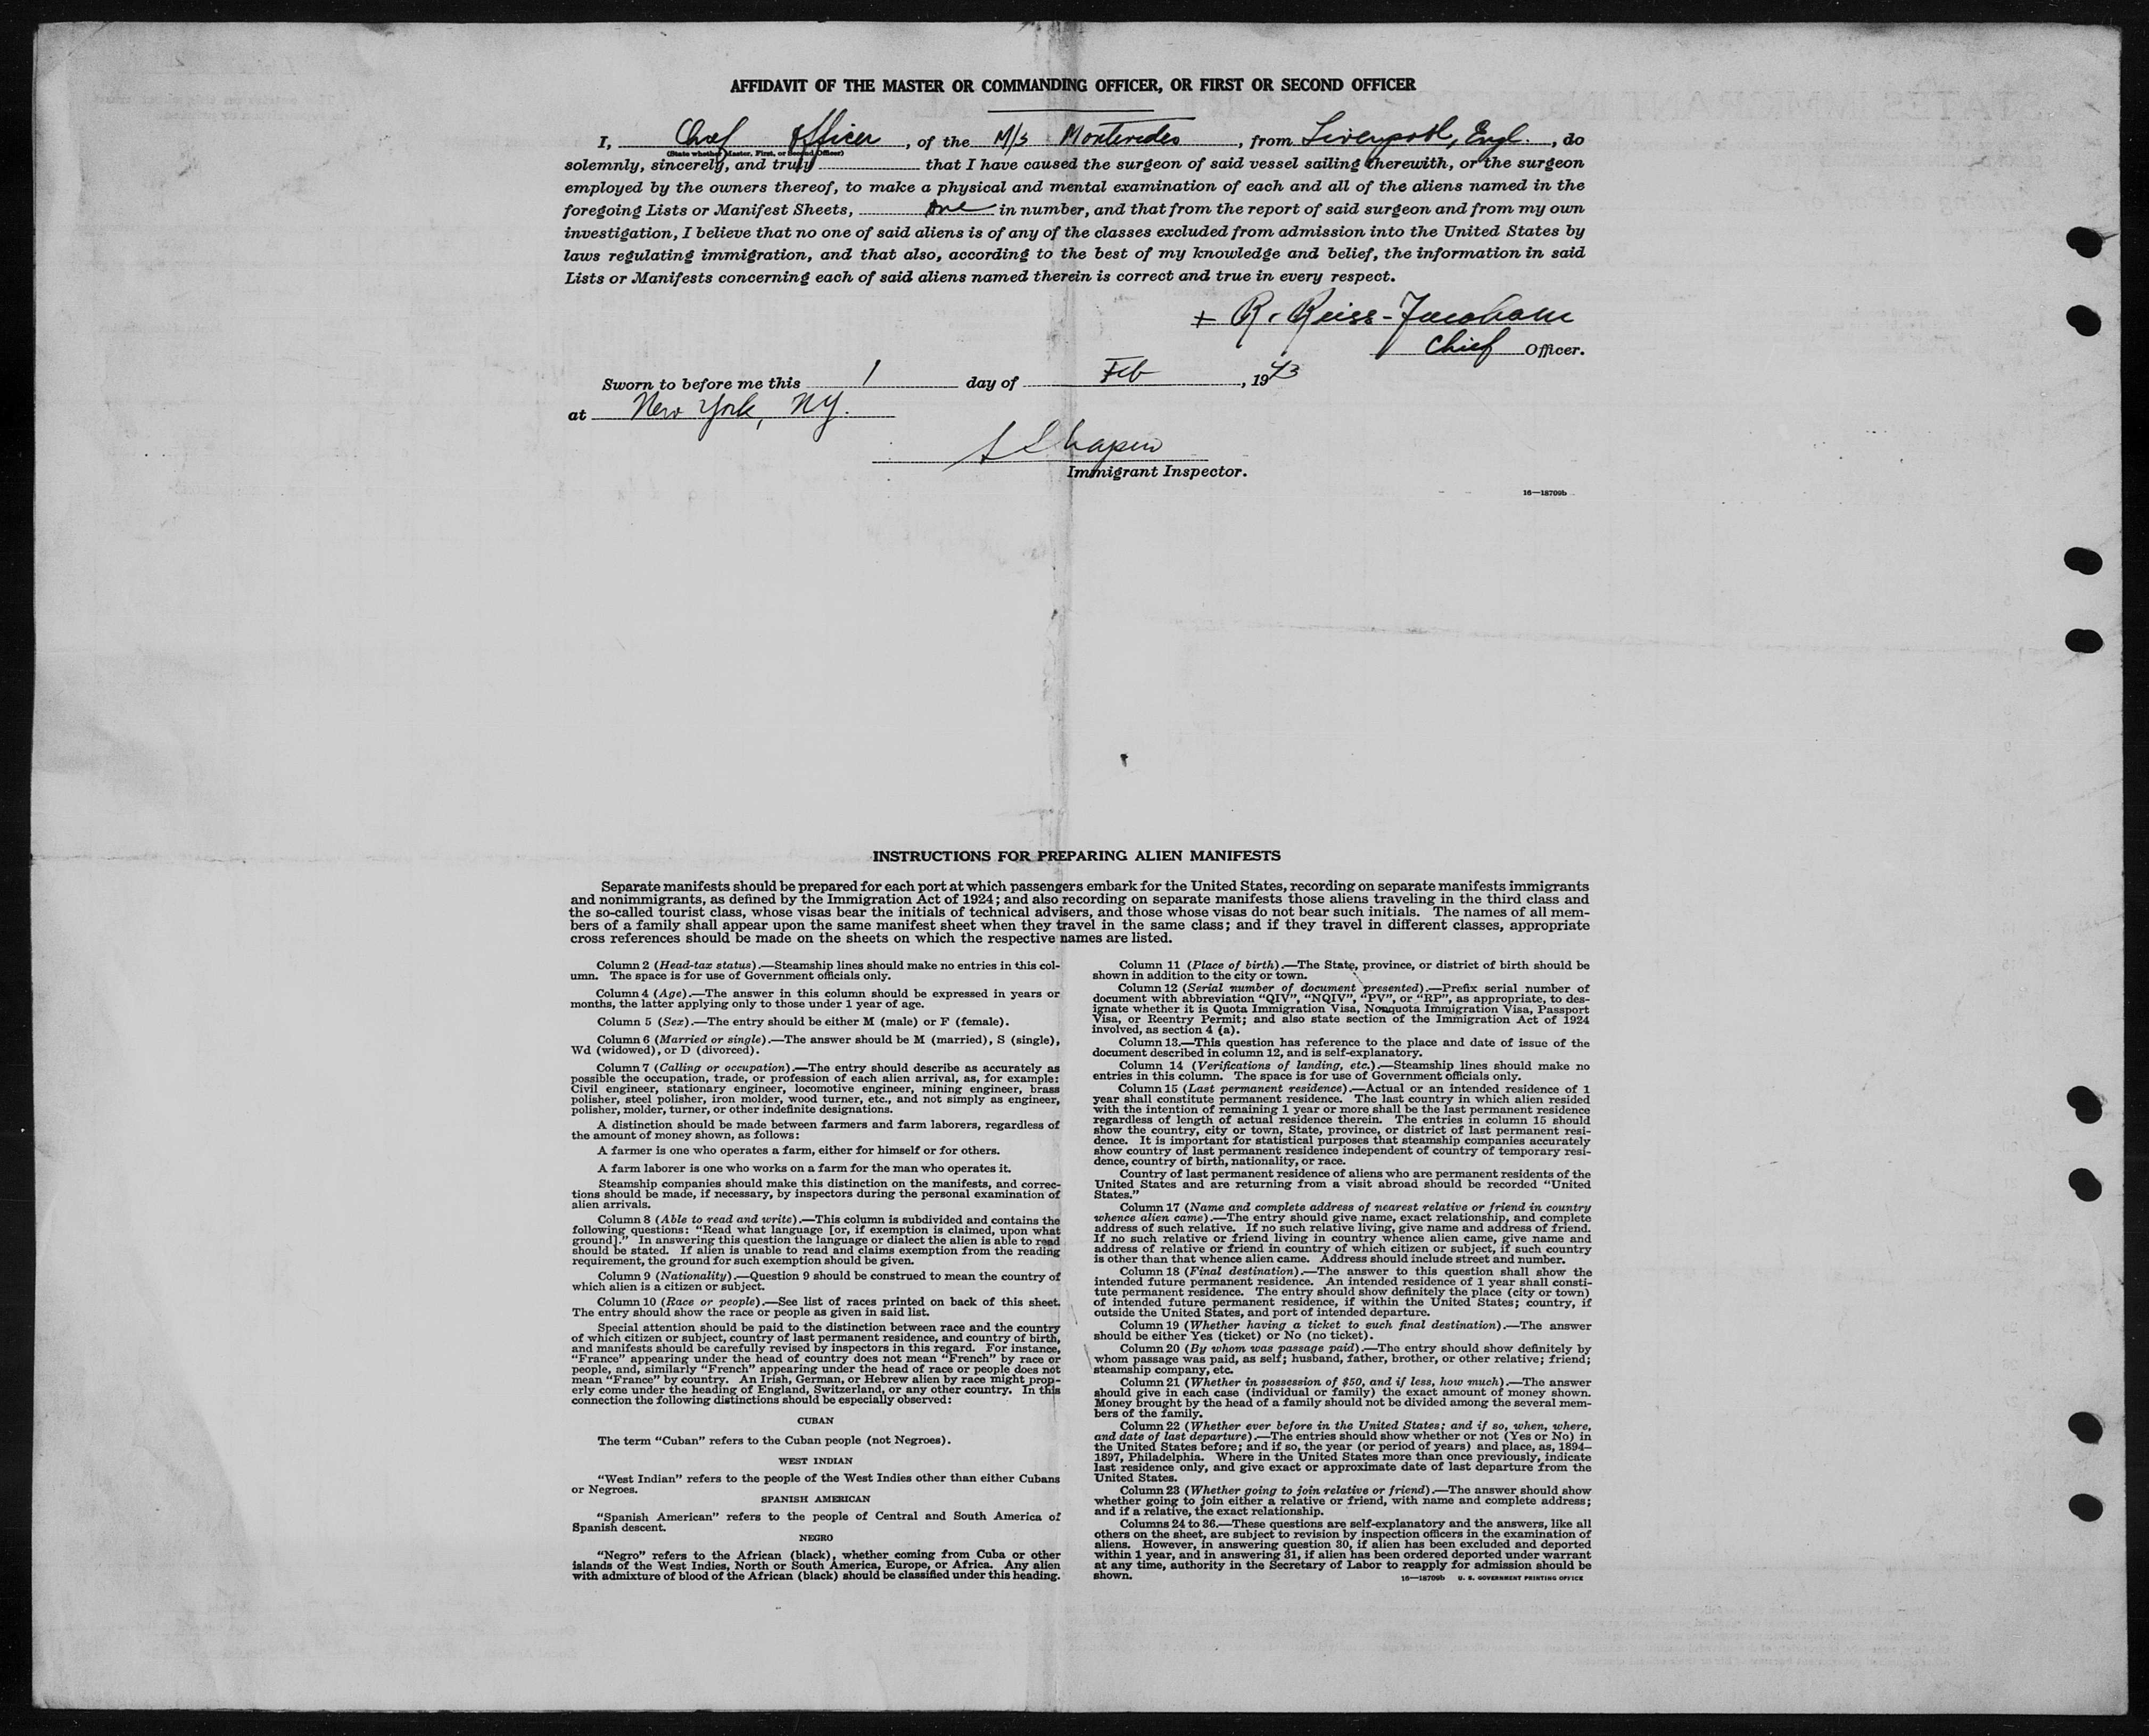 AFFIDAVIT OF THE MASTER OR COMMANDING OFFICER, OR FIRST OR SECOND OFFICER
I, Chief Officer, of the M/S Montevideo, from Liverpool, Engl., do
(State whether Master, First, or Second Officer)
solemnly, sincerely, and truly that I have caused the surgeon of said vessel sailing therewith, or the surgeon
employed by the owners thereof, to make a physical and mental examination of each and all of the aliens named in the
foregoing Lists or Manifest Sheets, one in number, and that from the report of said surgeon and from my own
investigation, I believe that no one of said aliens is of any of the classes excluded from admission into the United States by
laws regulating immigration, and that also, according to the best of my knowledge and belief, the information in said
Lists or Manifests concerning each of said aliens named therein is correct and true in every respect.
+ R. Reiss-
Chief Officer.
Sworn to before me this 1 day of Feb, 1943
at New York, NY.
Immigrant Inspector.
16—18709b
INSTRUCTIONS FOR PREPARING ALIEN MANIFESTS
Separate manifests should be prepared for each port at which passengers embark for the United States, recording on separate manifests immigrants
and nonimmigrants, as defined by the Immigration Act of 1924; and also recording on separate manifests those aliens traveling in the third class and
the so-called tourist class, whose visas bear the initials of technical advisers, and those whose visas do not bear such initials. The names of all mem-
bers of a family shall appear upon the same manifest sheet when they travel in the same class; and if they travel in different classes, appropriate
cross references should be made on the sheets on which the respective names are listed.
Column 2 (Head-tax status).—Steamship lines should make no entries in this col-
umn. The space is for use of Government officials only.
Column 4 (Age).—The answer in this column should be expressed in years or
months, the latter applying only to those under 1 year of age.
Column 5 (Sex).—The entry should be either M (male) or F (female).
Column 6 (Married or single).—The answer should be M (married), S (single),
Wd (widowed), or D (divorced).
Column 7 (Calling or occupation).—The entry should describe as accurately as
possible the occupation, trade, or profession of each alien arrival, as, for example:
Civil engineer, stationary engineer, locomotive engineer, mining engineer, brass
polisher, steel polisher, iron molder, wood turner, etc., and not simply as engineer,
polisher, molder, turner, or other indefinite designations.
A distinction should be made between farmers and farm laborers, regardless of
the amount of money shown, as follows:
A farmer is one who operates a farm, either for himself or for others.
A farm laborer is one who works on a farm for the man who operates it.
Steamship companies should make this distinction on the manifests, and correc-
tions should be made, if necessary, by inspectors during the personal examination of
alien arrivals.
Column 8 (Able to read and write).—This column is subdivided and contains the
following questions: "Read what language [or, if exemption is claimed, upon what
ground]." In answering this question the language or dialect the alien is able to read
should be stated. If alien is unable to read and claims exemption from the reading
requirement, the ground for such exemption should be given.
Column 9 (Nationality).—Question 9 should be construed to mean the country of
which alien is a citizen or subject.
Column 10 (Race or people).—See list of races printed on back of this sheet.
The entry should show the race or people as given in said list.
Special attention should be paid to the distinction between race and the country
of which citizen or subject, country of last permanent residence, and country of birth,
and manifests should be carefully revised by inspectors in this regard. For instance,
"France" appearing under the head of country does not mean "French" by race or
people, and, similarly "French" appearing under the head of race or people does not
mean "France" by country. An Irish, German, or Hebrew alien by race might prop-
erly come under the heading of England, Switzerland, or any other country. In this
connection the following distinctions should be especially observed:
CUBAN
The term "Cuban" refers to the Cuban people (not Negroes).
WEST INDIAN
"West Indian" refers to the people of the West Indies other than either Cubans
or Negroes.
SPANISH AMERICAN
"Spanish American" refers to the people of Central and South America of
Spanish descent.
NEGRO
"Negro" refers to the African (black), whether coming from Cuba or other
islands of the West Indies, North or South America, Europe, or Africa. Any alien
with admixture of blood of the African (black) should be classified under this heading.
Column 11 (Place of birth).—The State, province, or district of birth should be
shown in addition to the city or town.
Column 12 (Serial number of document presented).—Prefix serial number of
document with abbreviation "QIV", "NQIV", "PV", or "RP", as appropriate, to des-
ignate whether it is Quota Immigration Visa, Nonquota Immigration Visa, Passport
Visa, or Reentry Permit; and also state section of the Immigration Act of 1924
involved, as section 4 (a).
Column 13.—This question has reference to the place and date of issue of the
document described in column 12, and is self-explanatory.
Column 14 (Verifications of landing, etc.).—Steamship lines should make no
entries in this column. The space is for use of Government officials only.
Column 15 (Last permanent residence).—Actual or an intended residence of 1
year shall constitute permanent residence. The last country in which alien resided
with the intention of remaining 1 year or more shall be the last permanent residence
regardless of length of actual residence therein. The entries in column 15 should
show the country, city or town, State, province, or district of last permanent resi-
dence. It is important for statistical purposes that steamship companies accurately
show country of last permanent residence independent of country of temporary resi-
dence, country of birth, nationality, or race.
Country of last permanent residence of aliens who are permanent residents of the
United States and are returning from a visit abroad should be recorded "United
States."
Column 17 (Name and complete address of nearest relative or friend in country
whence alien came).—The entry should give name, exact relationship, and complete
address of such relative. If no such relative living, give name and address of friend.
If no such relative or friend living in country whence alien came, give name and
address of relative or friend in country of which citizen or subject, if such country
is other than that whence alien came. Address should include street and number.
Column 18 (Final destination).—The answer to this question shall show the
intended future permanent residence. An intended residence of 1 year shall consti-
tute permanent residence. The entry should show definitely the place (city or town)
of intended future permanent residence, if within the United States; country, if
outside the United States, and port of intended departure.
Column 19 (Whether having a ticket to such final destination).—The answer
should be either Yes (ticket) or No (no ticket).
Column 20 (By whom was passage paid).—The entry should show definitely by
whom passage was paid, as self; husband, father, brother, or other relative; friend;
steamship company, etc.
Column 21 (Whether in possession of $50, and if less, how much).—The answer
should give in each case (individual or family) the exact amount of money shown.
Money brought by the head of a family should not be divided among the several mem-
bers of the family.
Column 22 (Whether ever before in the United States; and if so, when, where,
and date of last departure).—The entries should show whether or not (Yes or No) in
the United States before; and if so, the year (or period of years) and place, as, 1894–
1897, Philadelphia. Where in the United States more than once previously, indicate
last residence only, and give exact or approximate date of last departure from the
United States.
Column 23 (Whether going to join relative or friend).—The answer should show
whether going to join either a relative or friend, with name and complete address;
and if a relative, the exact relationship.
Columns 24 to 36.—These questions are self-explanatory and the answers, like all
others on the sheet, are subject to revision by inspection officers in the examination of
aliens. However, in answering question 30, if alien has been excluded and deported
within 1 year, and in answering 31, if alien has been ordered deported under warrant
at any time, authority in the Secretary of Labor to reapply for admission should be
shown.
16—18709b U. S. GOVERNMENT PRINTING OFFICE